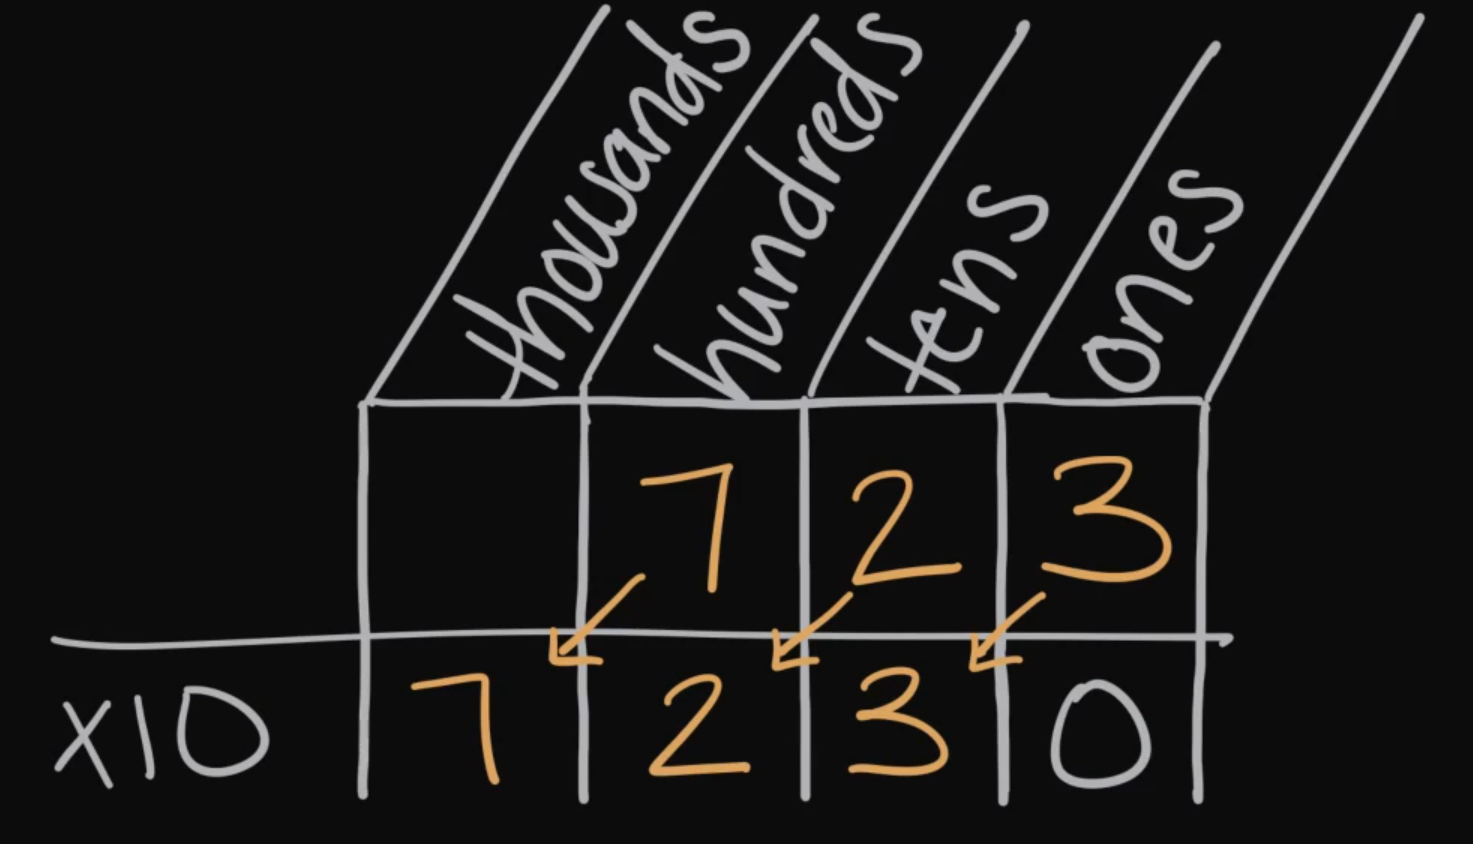 thousands hundreds tens ones
7 2 3
x10 7 2 3 0